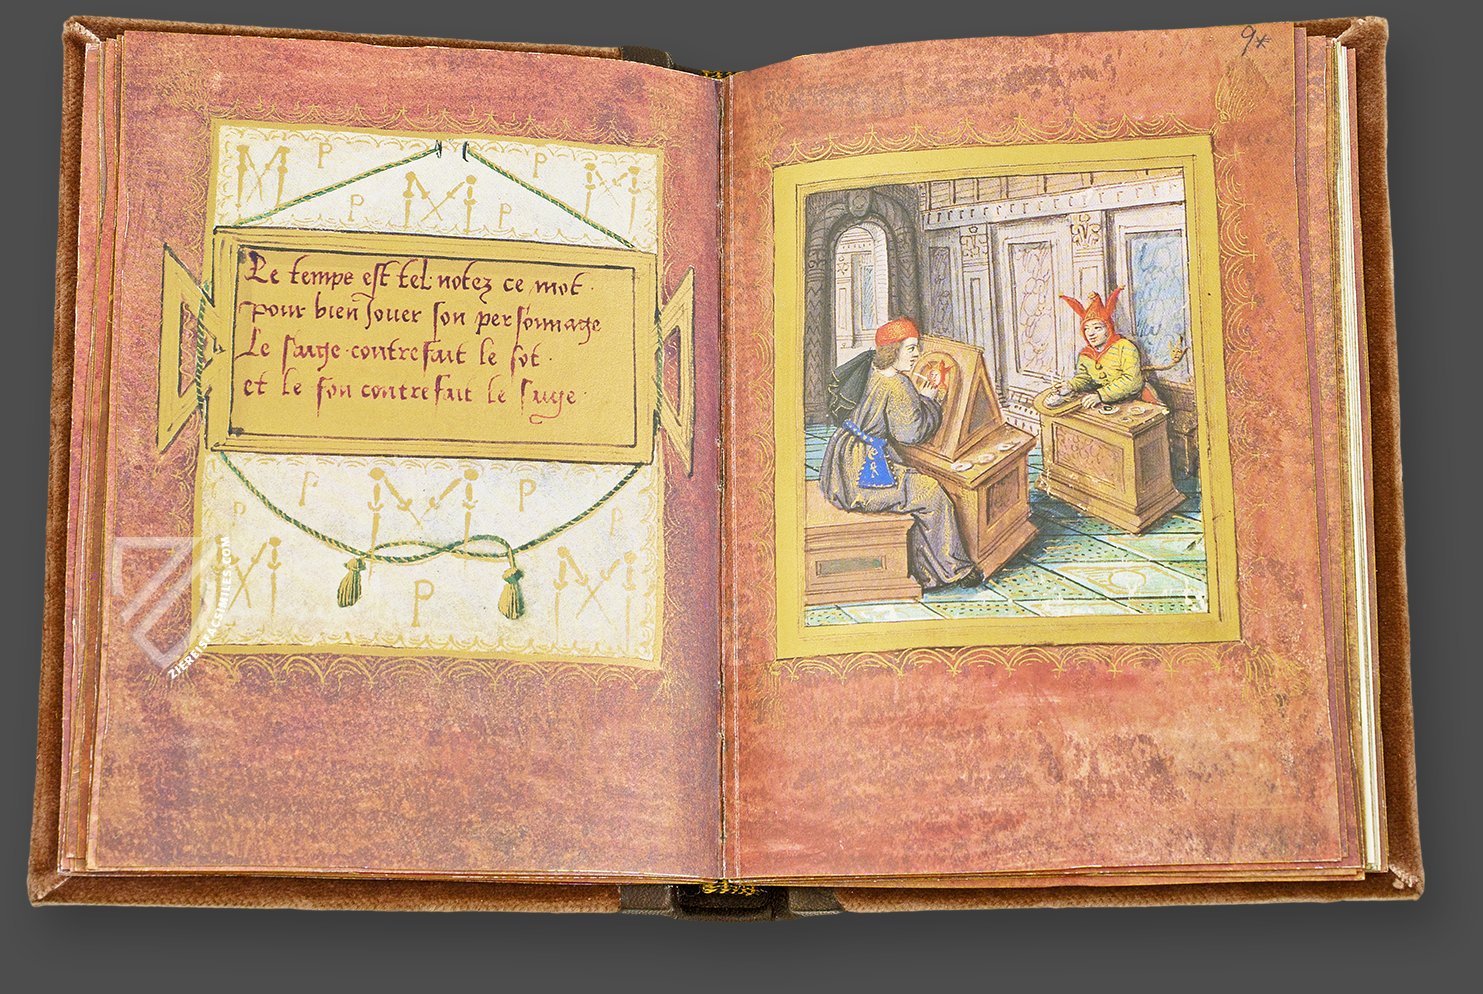 Le temps est tel notez ce mot.
pour bien Jouer son personnage
Le saige contrefait le sot.
et le fou contrefait le saige.
9*
P
P
P
P
P
P
P
P
ZIEREISFACSIMILES.COM